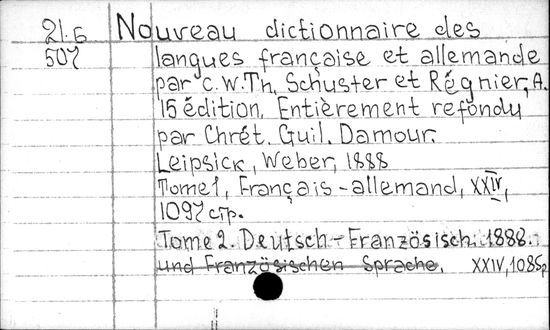 21.6 Nouveau dictionnaire des
507 langues française et allemande
par C.W.Th. Schuster et Régnier, A.
15 édition. Entièrement refondu
par Chrét. Guil. Damour.
Leipsick, Weber, 1888
Tome 1, Français-allemand, XXIV,
1097 стр.
Tome 2. Deutsch-Französisch. 1888.
und Französischen Sprache. XXIV, 1085p